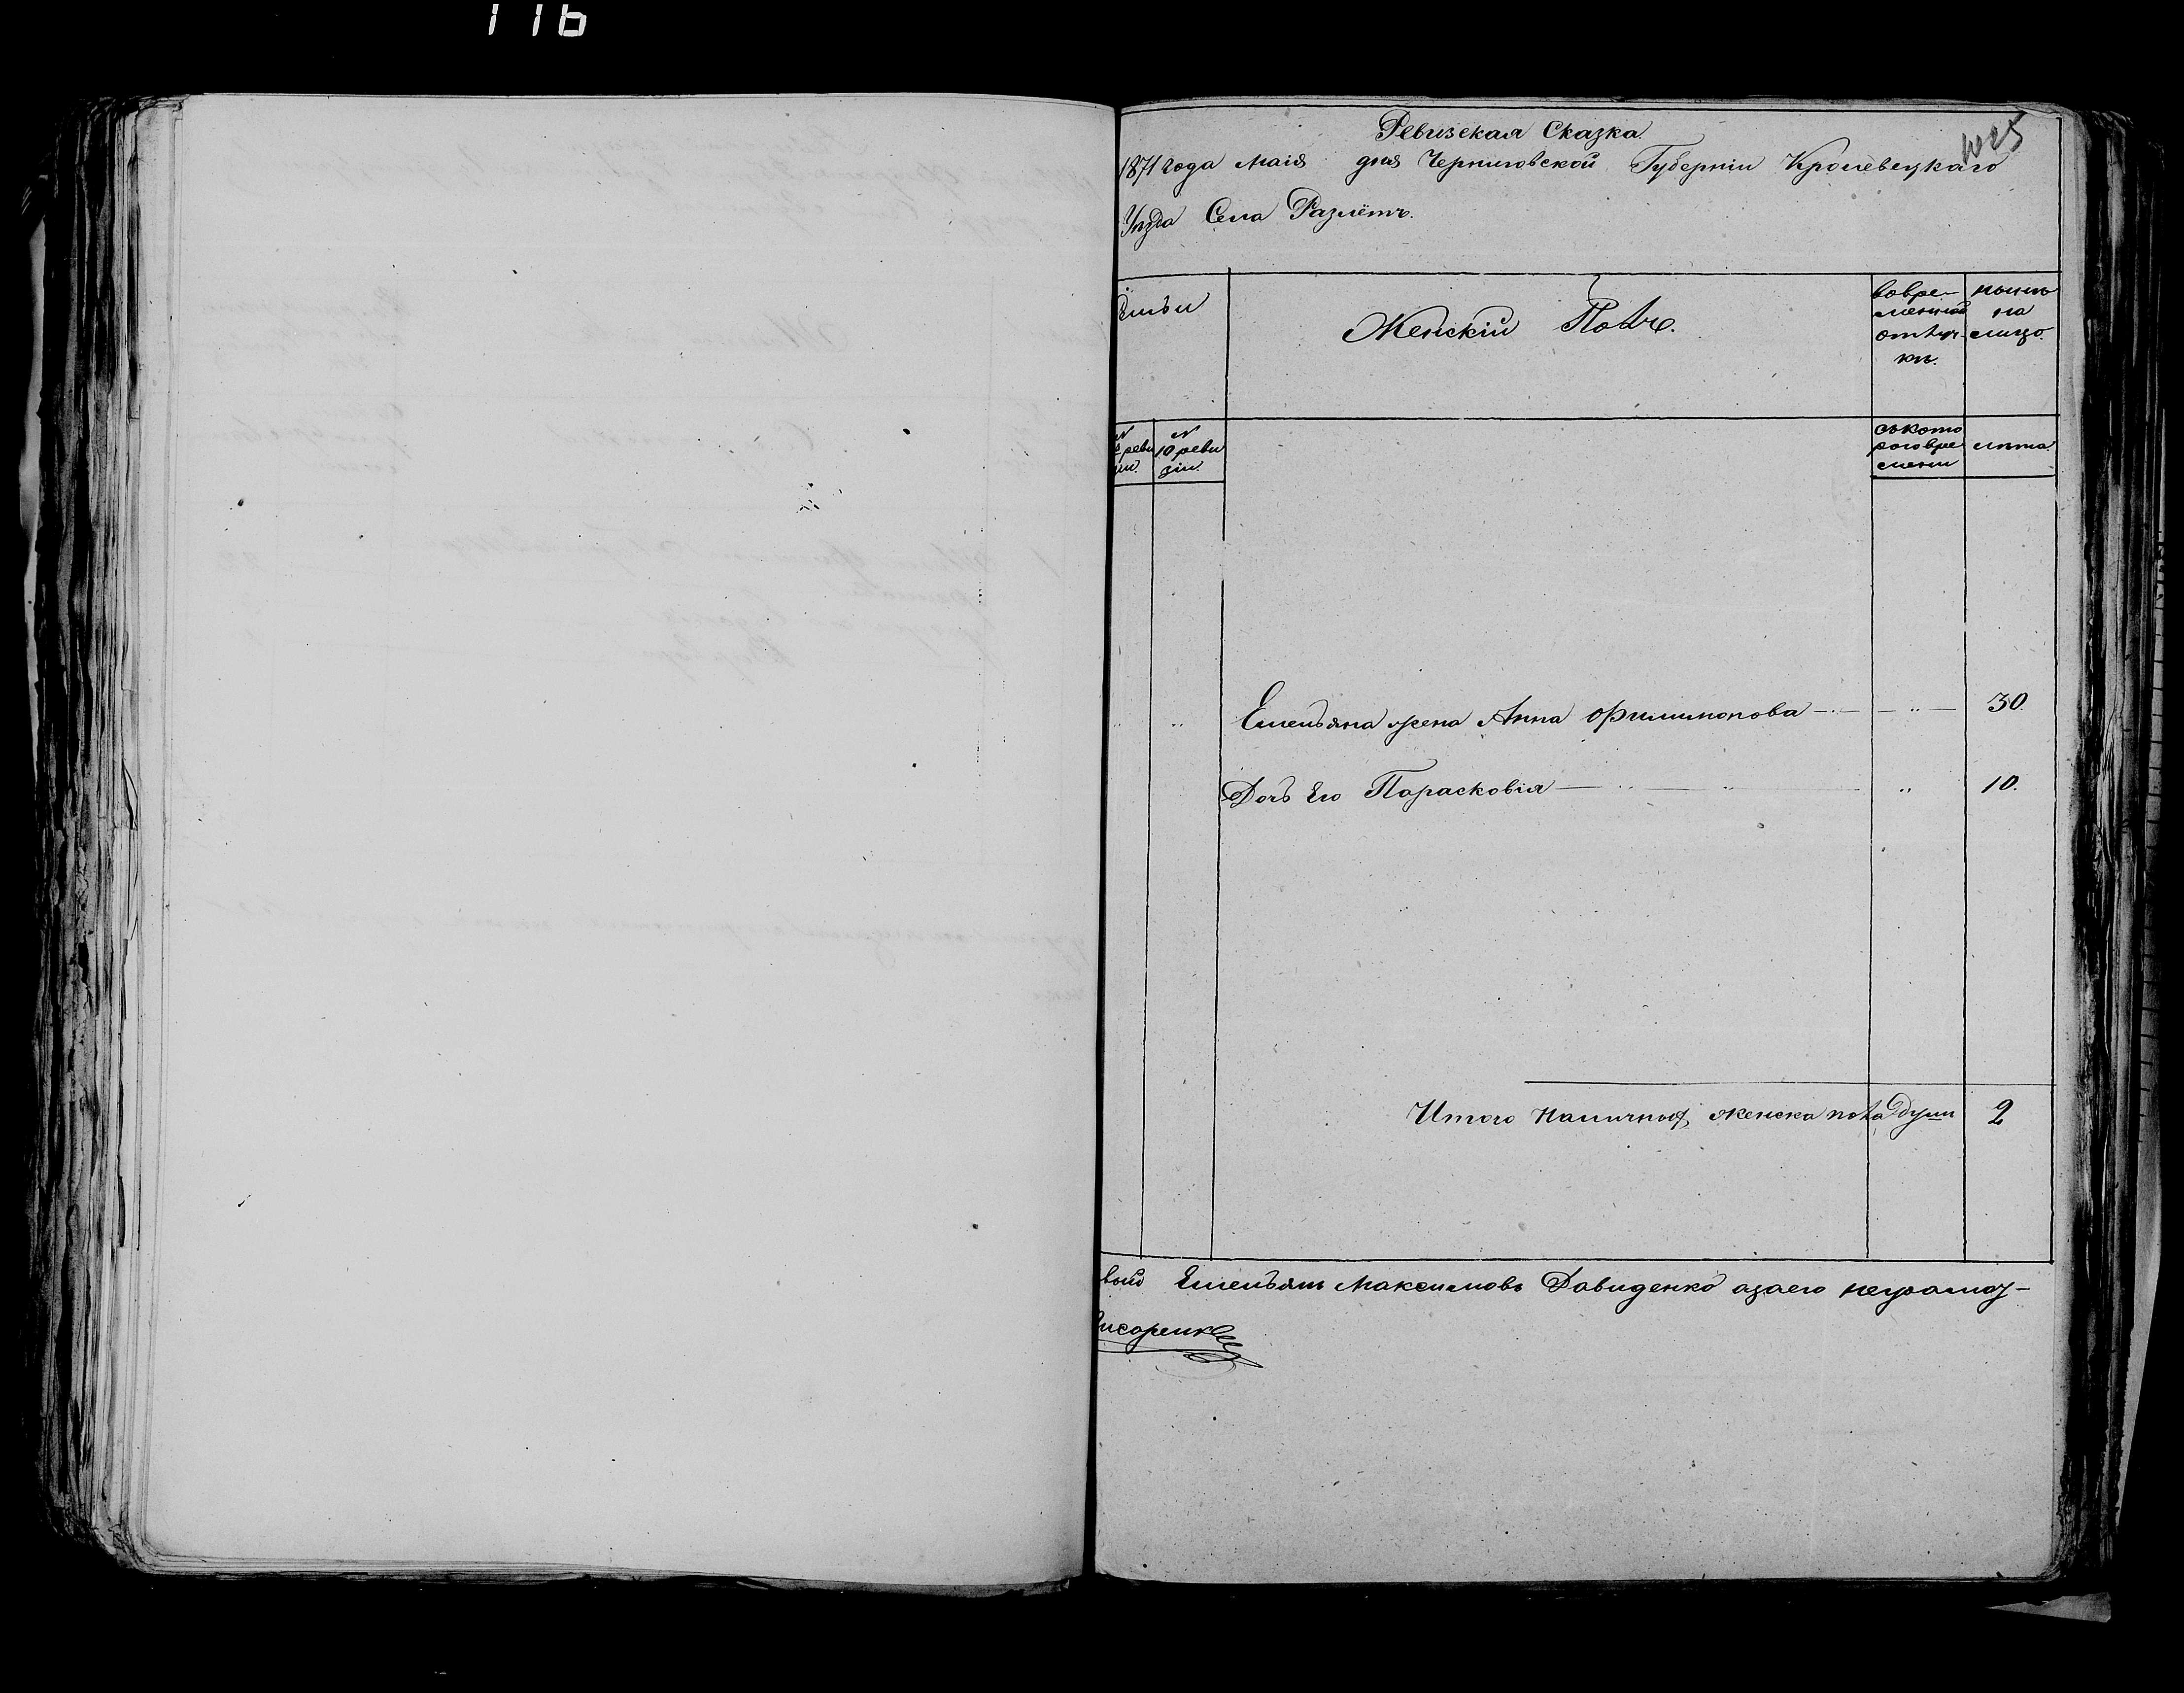 116
1025
Ревизская Сказка.
1871 года Маія дня Черниговской Губерніи Кролевецкаго
Уѣзда Села Разлётъ.
Женскій Полъ.
вовре-
менной
отлуч-
кѣ.
нынѣ
на
лицо.
10 реви
зіи.
съкото
роговре
мени
лѣта.
Емельяна жена Анна Филимонова — „ — 30.
Дочь Его Парасковія — „ — „ — „ 10.
Итого наличныхъ женска пола душъ 2
вый Емельянъ Максимовъ Давиденко азаего неграмот-